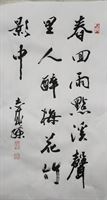 春回雨點溪聲
里人醉梅花竹
影中